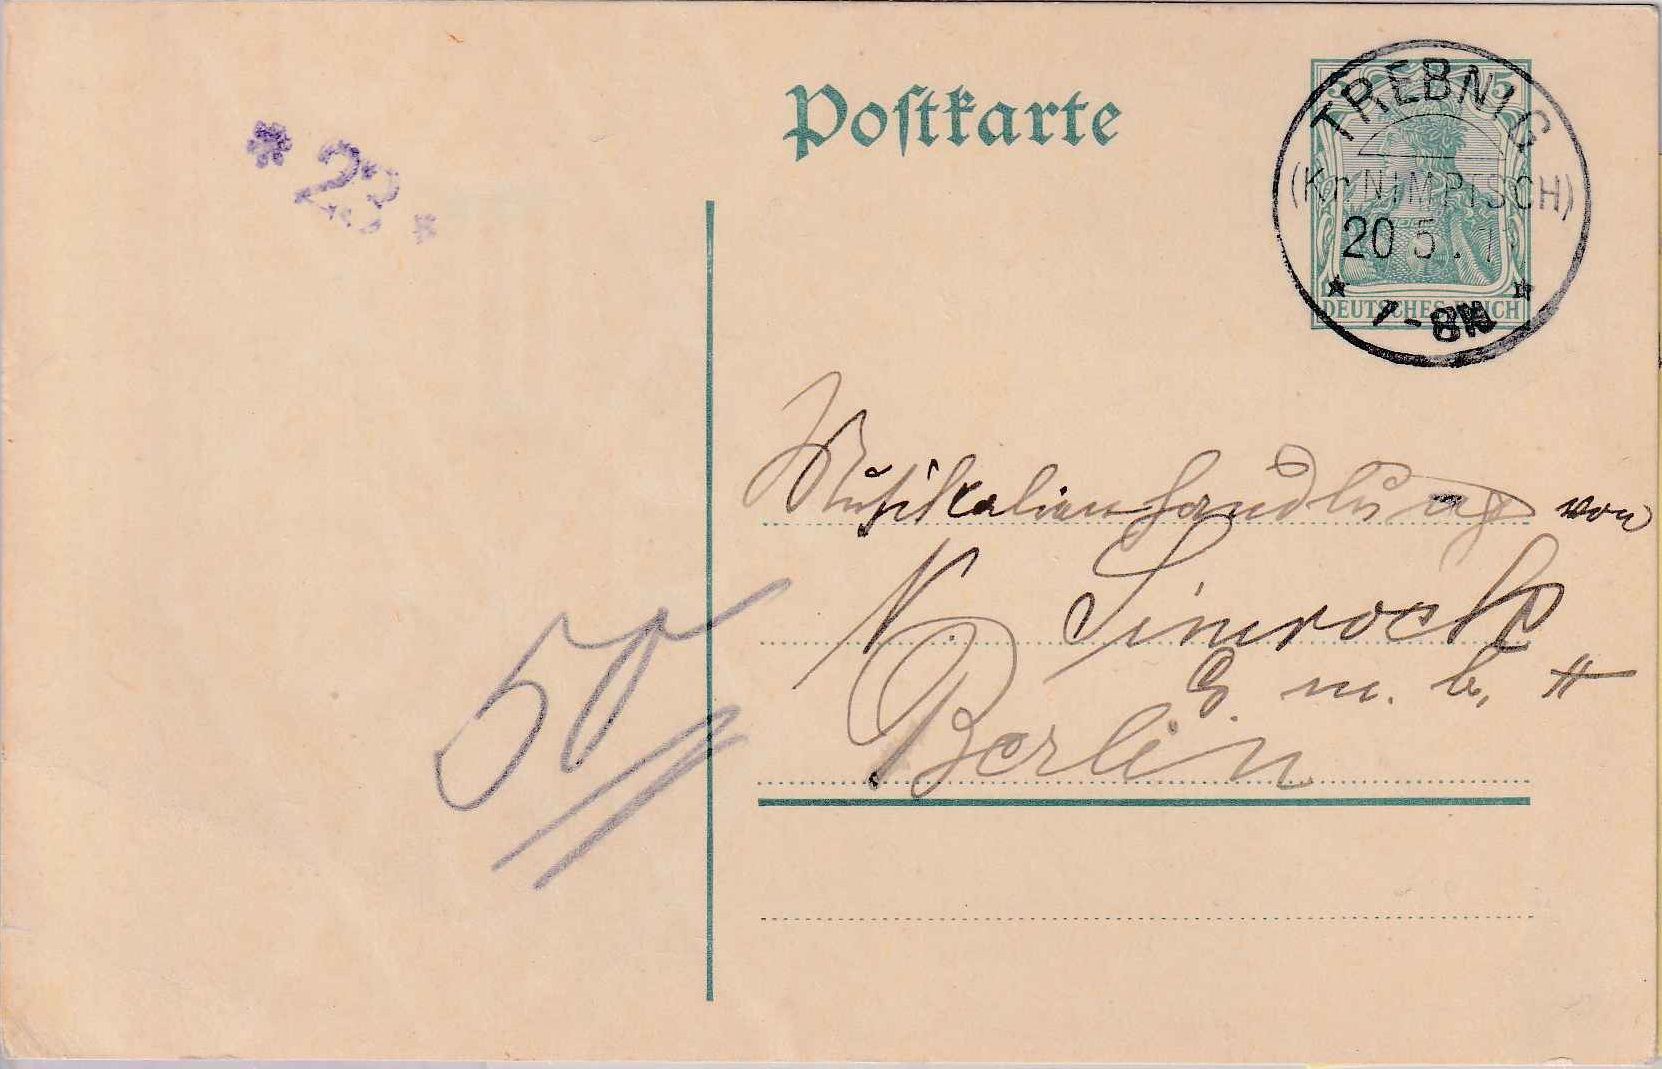 Postkarte
5 5
TREBNIG
(Kr. NIMPTSCH)
20 5.
7-8N
DEUTSCHES REICH
* 23 *
Musikalienhandlung von
N. Simrock
G. m. b. H
Berlin
50